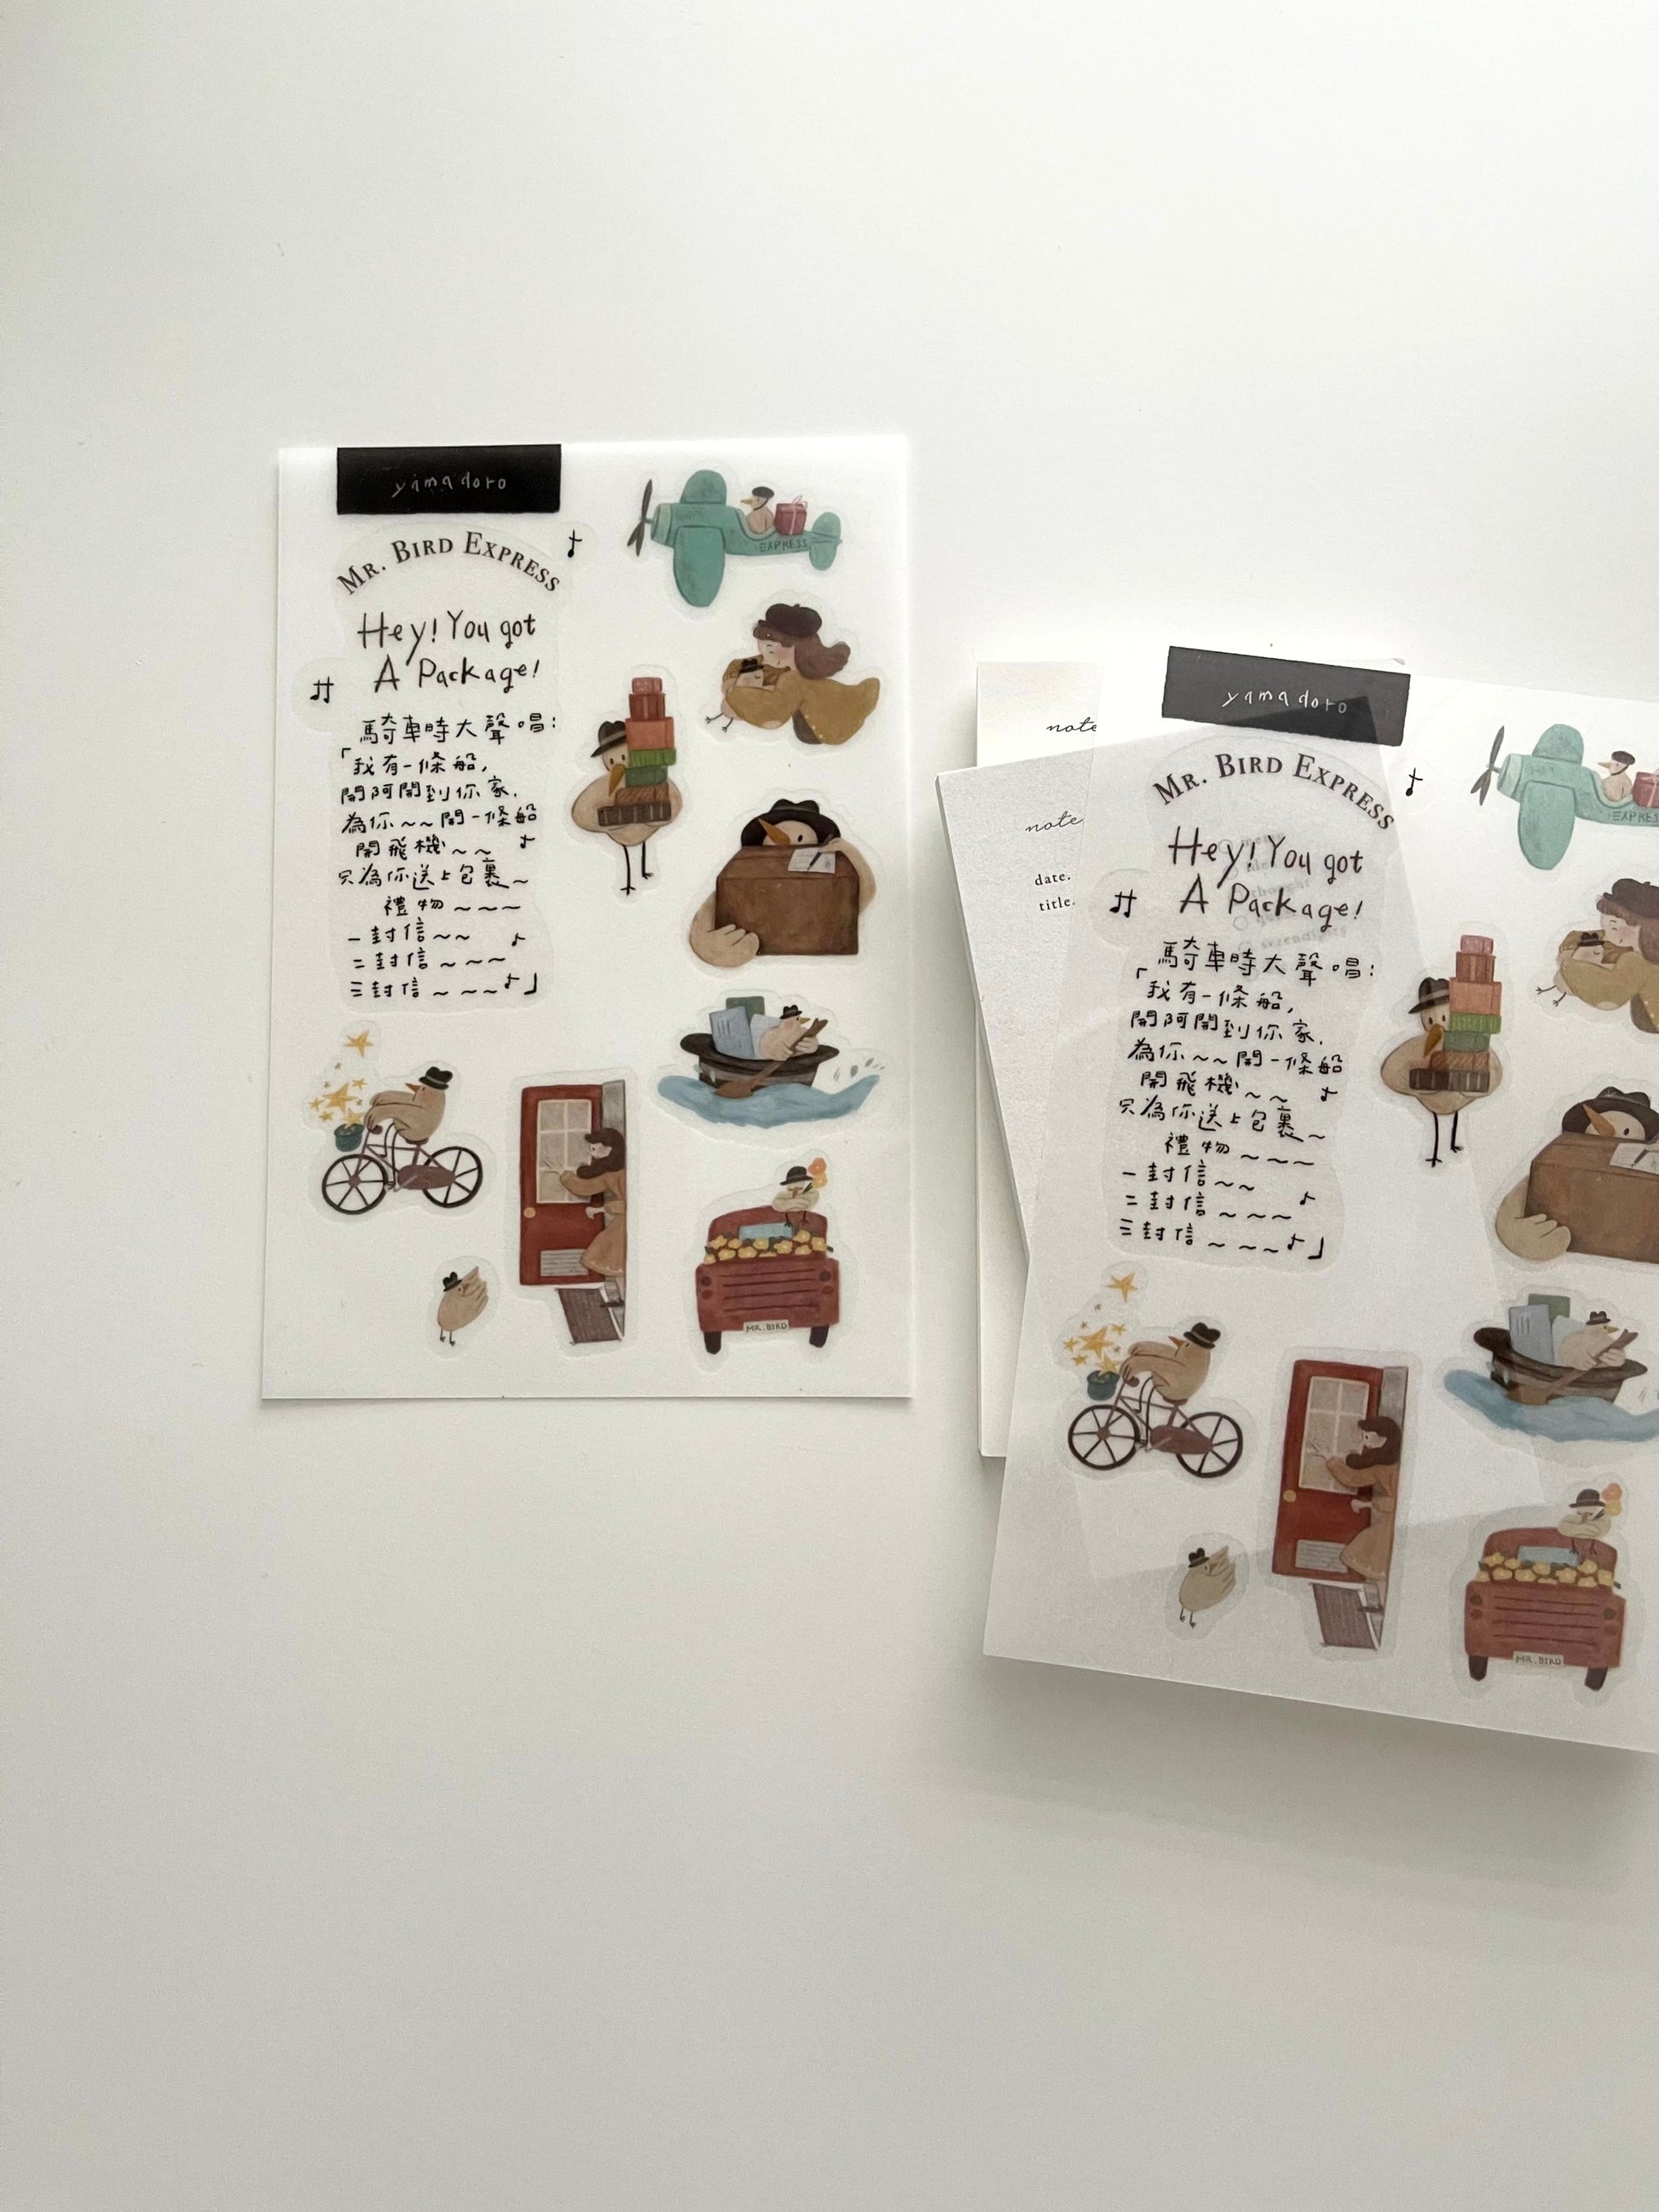 yamadoro
MR. BIRD EXPRESS
Hey! You got
A Package!
騎車時大聲唱：
「我有一條船,
開阿開到你家.
為你~~開一條船
開飛機~~
只為你送上包裹~
禮物~~~
一封信~~
二封信~~~
三封信~~~」
EXPRESS
MR. BIRD
note
note
date.
title.
yamadoro
MR. BIRD EXPRESS
Hey! You got
A Package!
騎車時大聲唱：
「我有一條船,
開阿開到你家.
為你~~開一條船
開飛機~~
只為你送上包裹~
禮物~~~
一封信~~
二封信~~~
三封信~~~」
EXPRESS
MR. BIRD
thought
serendipity